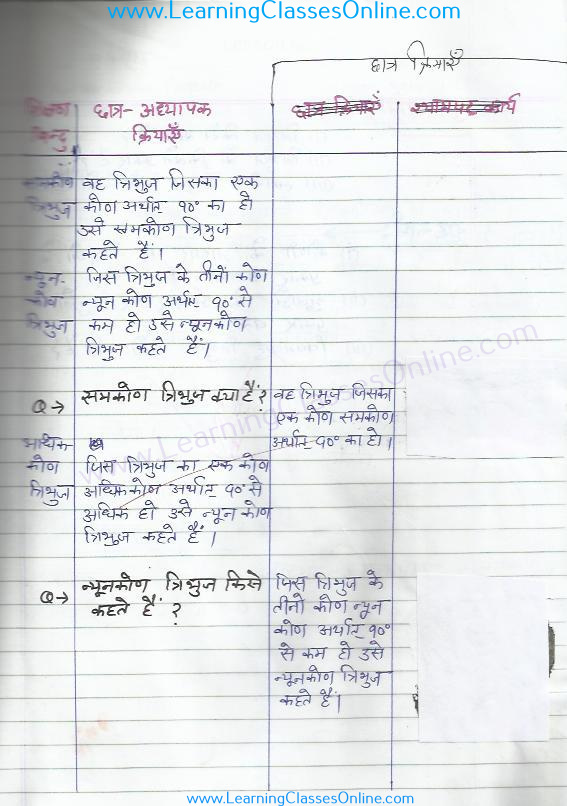 www.LearningClassesOnline.com
छात्र क्रियाएँ
शिक्षण बिन्दु
छात्र- अध्यापक
क्रियाएँ
छात्र क्रियाएँ
श्यामपट्ट कार्य
समकोण
त्रिभुज
वह त्रिभुज जिसका एक
कोण अर्थात् ९०° का हो
उसे समकोण त्रिभुज
कहते हैं।
न्यून-
कोण
त्रिभुज
जिस त्रिभुज के तीनों कोण
न्यून कोण अर्थात् ९०° से
कम हो उसे न्यूनकोण
त्रिभुज कहते हैं।
Q → समकोण त्रिभुज क्या हैं?
वह त्रिभुज जिसका
एक कोण समकोण
अर्थात् ९०° का हो।
अधिक
कोण
त्रिभुज
जिस त्रिभुज का एक कोण
अधिककोण अर्थात् ९०° से
अधिक हो उसे न्यून कोण
त्रिभुज कहते हैं।
Q → न्यूनकोण त्रिभुज किसे
कहते हैं?
जिस त्रिभुज के
तीनो कोण न्यून
कोण अर्थात् ९०°
से कम हो उसे
न्यूनकोण त्रिभुज
कहते हैं।
www.LearningClassesOnline.com
www.LearningClassesOnline.com